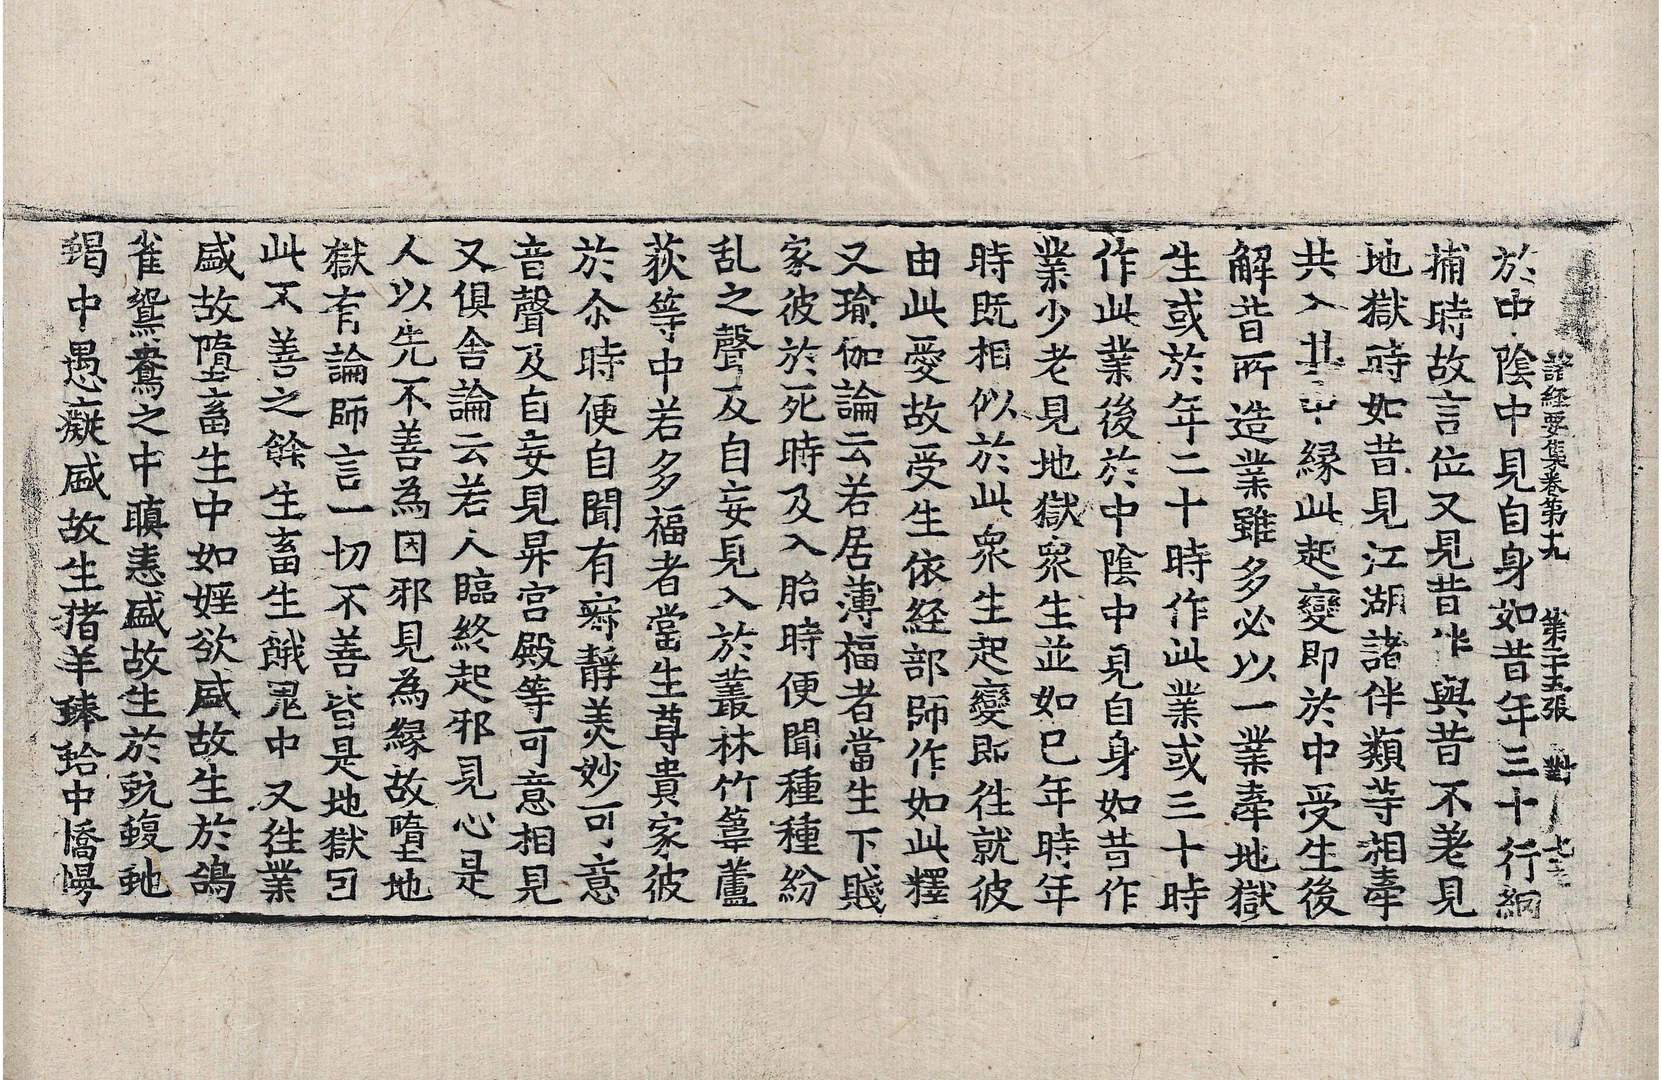 諸経要集卷第十九 第二十五張 對
於中陰中見自身如昔年三十行網
捕時故言位又見昔作與昔不老見
地獄時如昔見江湖諸伴類等相牽
共入其中縁此起變即於中受生後
解昔所造業雖多必以一業牽地獄
生或於年二十時作此業或三十時
作此業後於中陰中見自身如昔作
業少老見地獄衆生並如已年時年
時既相似於此衆生起變即徃就彼
由此愛故受生依経部師作如此釋
又瑜伽論云若居薄福者當生下賤
家彼於死時及入胎時便聞種種紛
乱之聲及自妄見入於叢林竹葦蘆
荻等中若多福者當生尊貴家彼
於尒時便自聞有寂靜美妙可意
音聲及自妄見昇宮殿等可意相見
又俱舍論云若人臨終起邪見心是
人以先不善為因邪見為縁故墮地
獄有論師言一切不善皆是地獄因
此不善之餘生畜生餓鬼中又徃業
盛故墮畜生中如婬欲盛故生於鴿
雀鴛鴦之中瞋恚盛故生於蚖蝮虵
蝎中愚癡盛故生猪羊蜯蛤中憍慢